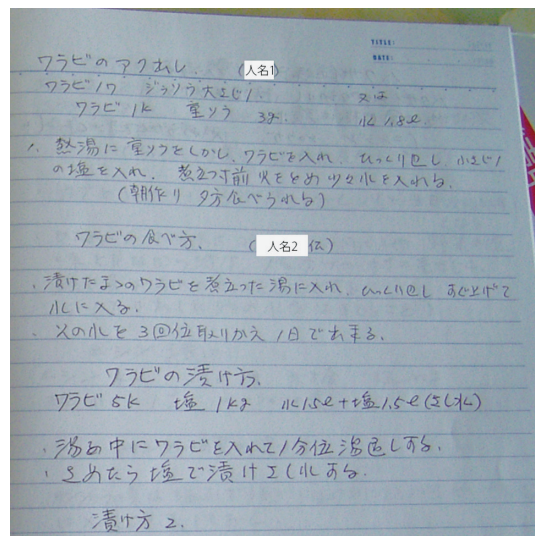 TITLE:
DATE:
ワラビのアク出し. (人名1)
ワラビ1ワ ジュウソウ大さじ1. 又は
ワラビ1K 重ソウ 3g. 水1.5ℓ
熱湯に重ソウをとかし、ワラビを入れ、ひっくり返し 小さじ1
の塩を入れ、煮立つ寸前火をとめ少々水を入れる.
(朝作り 夕方食べられる)
ワラビの食べ方. (人名2伝)
・漬けたまゝのワラビを煮立った湯に入れ、ひっくり返し すぐ上げて
水に入る.
・火の水を3回位取りかえ1日で出来る.
ワラビの漬け方.
ワラビ5K 塩1kg 水1.5ℓ+塩1.5ℓ(さし水)
・湯の中にワラビを入れて1分位湯通しする.
・さめたら塩で漬けさし水する.
漬け方2.